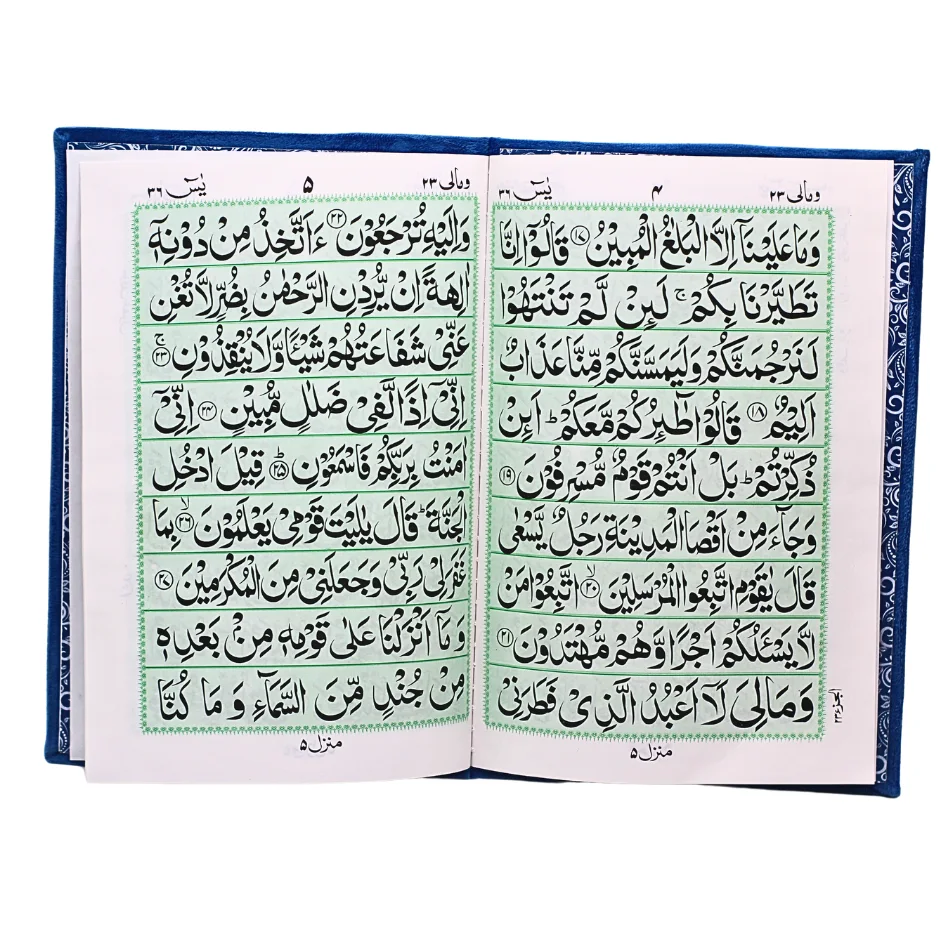 یٰسٓ ٣٦ ۴ ومالی ٢٣
وَمَا عَلَيْنَاۤ اِلَّا الْبَلٰغُ الْمُبِيْنُ ﴿١٧﴾ قَالُوْۤا اِنَّا
تَطَيَّرْنَا بِكُمْ ۚ لَىِٕنْ لَّمْ تَنْتَهُوْا
لَنَرْجُمَنَّكُمْ وَلَيَمَسَّنَّكُمْ مِّنَّا عَذَابٌ
اَلِيْمٌ ﴿١٨﴾ قَالُوْا طَآىِٕرُكُمْ مَّعَكُمْ ؕ اَىِٕنْ
ذُكِّرْتُمْ ؕ بَلْ اَنْتُمْ قَوْمٌ مُّسْرِفُوْنَ ﴿١٩﴾
وَجَآءَ مِنْ اَقْصَا الْمَدِيْنَةِ رَجُلٌ يَّسْعٰى
قَالَ يٰقَوْمِ اتَّبِعُوا الْمُرْسَلِيْنَ ۙ﴿٢٠﴾ اتَّبِعُوْا مَنْ
لَّا يَسْـَٔلُكُمْ اَجْرًا وَّهُمْ مُّهْتَدُوْنَ ﴿٢١﴾
وَمَالِيَ لَاۤ اَعْبُدُ الَّذِيْ فَطَرَنِيْ
منزل ۵
یٰسٓ ٣٦ ۵ ومالی ٢٣
وَاِلَيْهِ تُرْجَعُوْنَ ﴿٢٢﴾ ءَاَتَّخِذُ مِنْ دُوْنِهٖۤ
اٰلِهَةً اِنْ يُّرِدْنِ الرَّحْمٰنُ بِضُرٍّ لَّا تُغْنِ
عَنِّيْ شَفَاعَتُهُمْ شَيْـًٔا وَّلَا يُنْقِذُوْنِ ۚ﴿٢٣﴾
اِنِّيْۤ اِذًا لَّفِيْ ضَلٰلٍ مُّبِيْنٍ ﴿٢٤﴾ اِنِّيْۤ
اٰمَنْتُ بِرَبِّكُمْ فَاسْمَعُوْنِ ؕ﴿٢٥﴾ قِيْلَ ادْخُلِ
الْجَنَّةَ ؕ قَالَ يٰلَيْتَ قَوْمِيْ يَعْلَمُوْنَ ۙ﴿٢٦﴾ بِمَا
غَفَرَلِيْ رَبِّيْ وَجَعَلَنِيْ مِنَ الْمُكْرَمِيْنَ ﴿٢٧﴾
وَمَاۤ اَنْزَلْنَا عَلٰى قَوْمِهٖ مِنْۢ بَعْدِهٖ
مِنْ جُنْدٍ مِّنَ السَّمَآءِ وَمَا كُنَّا
منزل ۵